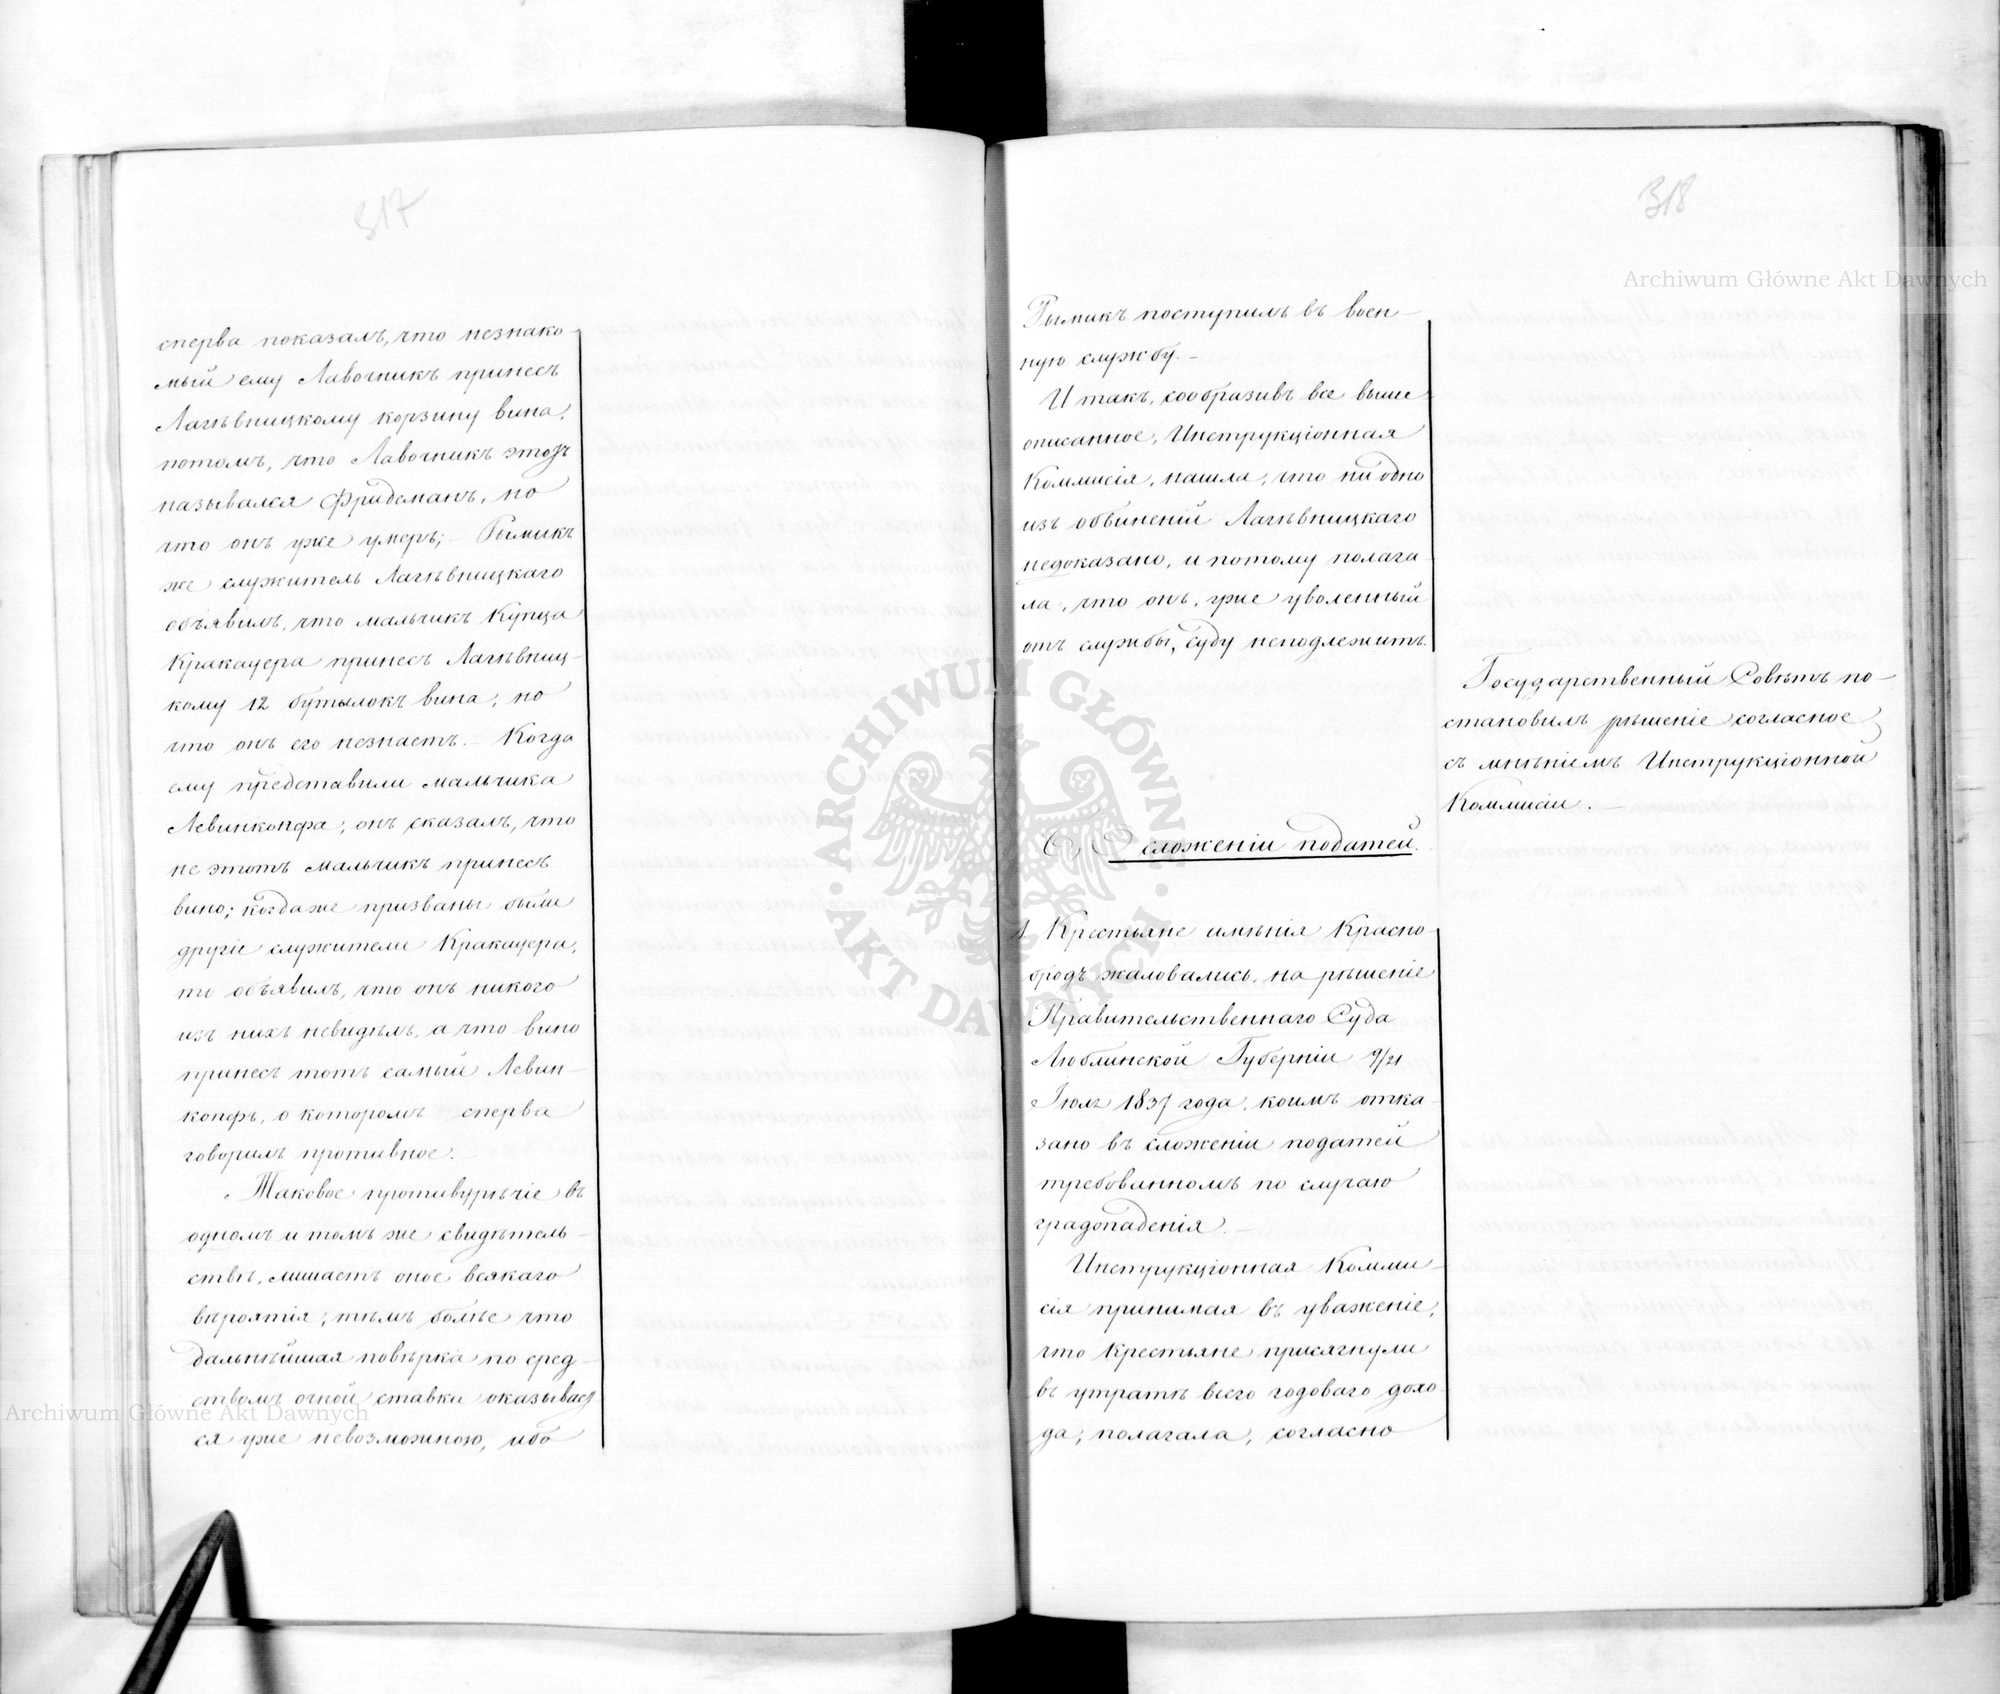 317
сперва показалъ, что незнако-
мый ему Лавочникъ принесъ
Лагѣвницкому корзину вина,
потомъ, что Лавочникъ этотъ
назывался Фридеманъ, но
что онъ уже умеръ; – Рымикъ
же служитель Лагѣвницкаго
объявилъ, что мальчикъ Купца
Кракауера принесъ Лагѣвниц-
кому 12 бутылокъ вина, но
что онъ его незнаетъ. – Когда
ему представили мальчика
Левинкопфа, онъ сказалъ, что
не этотъ мальчикъ принесъ
вино; когда же призваны были
другіе служители Кракауера,
то объявилъ, что онъ никого
изъ нихъ невидѣлъ, а что вино
принесъ тотъ самый Левин-
копфъ, о которомъ сперва
говорилъ противное.
Таковое противурѣчіе въ
одномъ и томъ же свидѣтель-
ствѣ, лишаетъ оное всякаго
вѣроятія, тѣмъ болѣе что
дальнѣйшая повѣрка по сред-
ствомъ очной ставки оказывает
ся уже невозможною, ибо
318
Рымикъ поступилъ въ воен-
ную службу. –
И такъ, сообразивъ все выше
описанное, Инструкціонная
Коммисія, нашла, что ни одно
изъ обвиненій Лагѣвницкаго
недоказано, и потому полага-
ла, что онъ, уже уволенный
отъ службы, суду неподлежитъ.
Государственный Совѣтъ по-
становилъ рѣшеніе согласное
съ мнѣніемъ Инструкціонной
Коммисіи. –
б, О сложеніи податей.
1. Крестьяне имѣнія Красно-
бродъ жаловались, на рѣшеніе
Правительственнаго Суда
Люблинской Губерніи 9/21
Іюля 1837 года, коимъ отка-
зано въ сложеніи податей
требованномъ по случаю
градопаденія. –
Инструкціонная Комми-
сія принимая въ уваженіе,
что Крестьяне присягнули
въ утратѣ всего годоваго дохо-
да, полагала, согласно
Archiwum Główne Akt Dawnych
ARCHIWUM GŁÓWNE · AKT DAWNYCH ·
Archiwum Główne Akt Dawnych